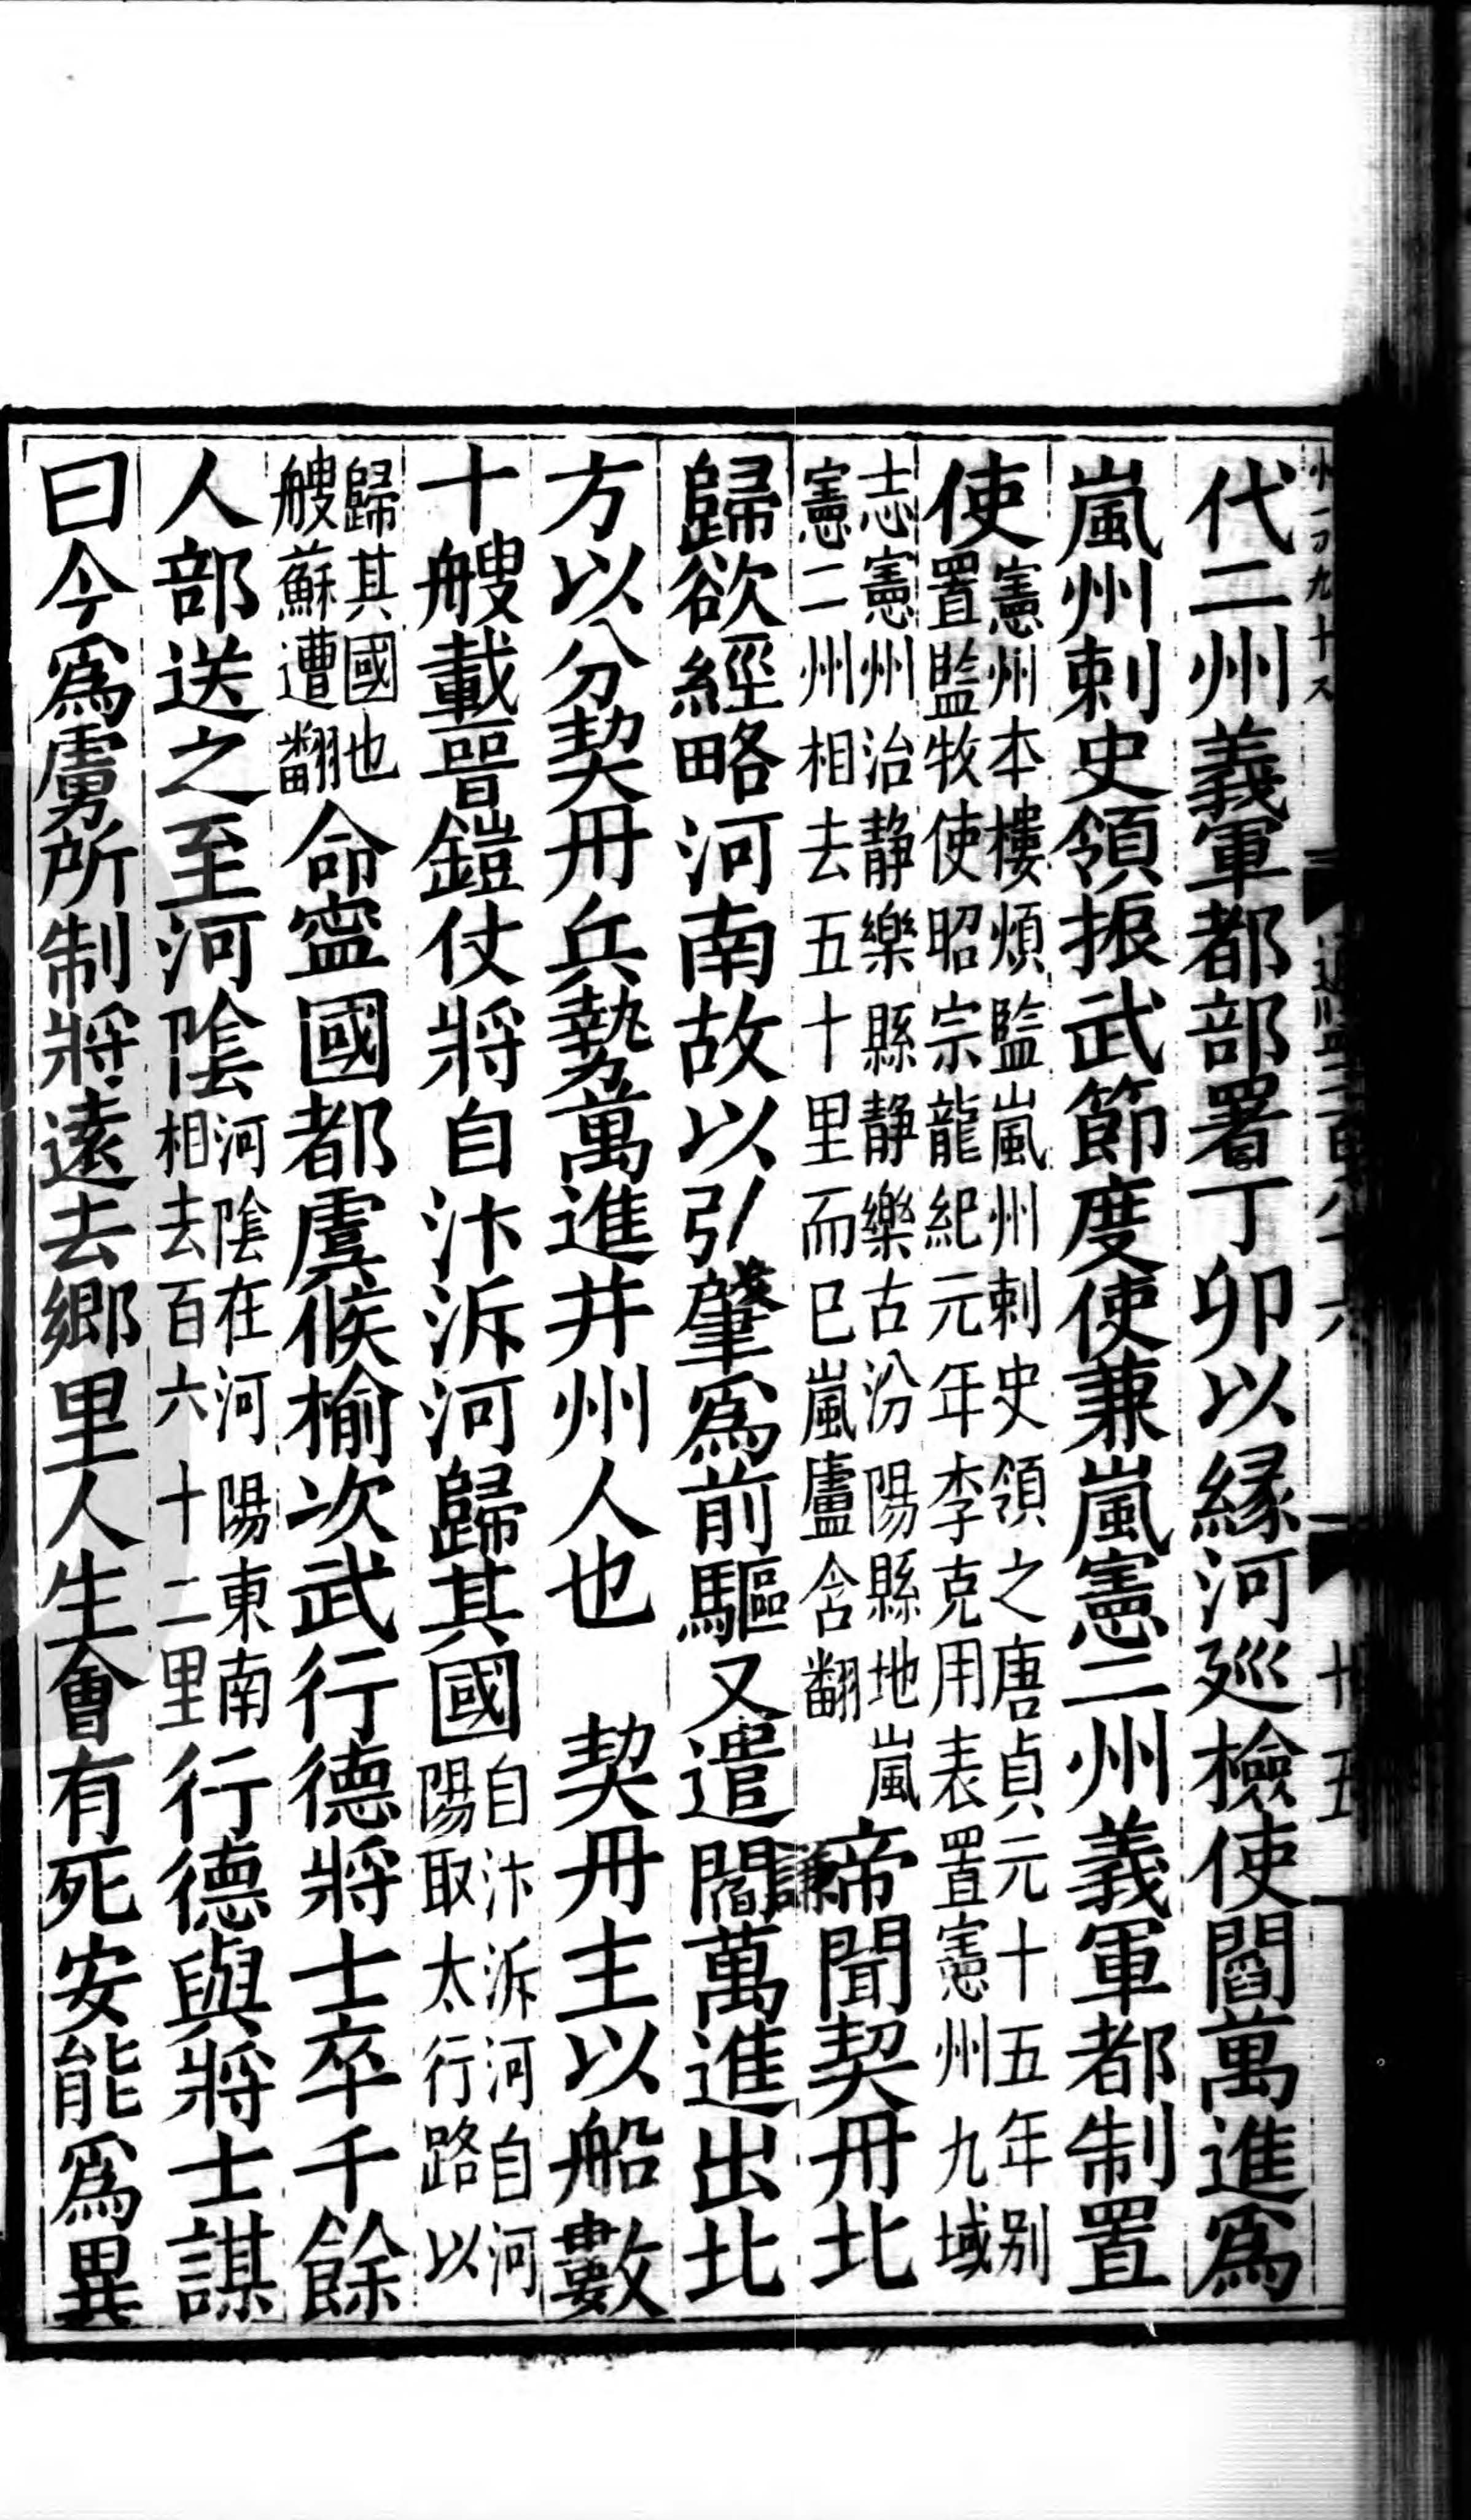 代二州義軍都部署丁卯以緣河廵檢使閻萬進爲
嵐州刺史領振武節度使兼嵐憲二州義軍都制置
使憲州本樓煩監嵐州刺史領之唐貞元十五年别
置監牧使昭宗龍紀元年李克用表置憲州九域
志憲州治静樂縣静樂古汾陽縣地嵐
憲二州相去五十里而已嵐盧含翻
帝聞契丹北
歸欲經略河南故以弘肇爲前驅又遣閻萬進出北
方以分契丹兵勢萬進并州人也　契丹主以船數
十艘載晉鎧仗將自汴泝河歸其國自汴泝河自河
陽取太行路以
歸其國也
艘蘇遭翻
命寍國都虞候榆次武行德將士卒千餘
人部送之至河隂河隂在河陽東南
相去百六十二里
行德與將士謀
曰今爲虜所制將遠去鄉里人生會有死安能爲異
謙
十五